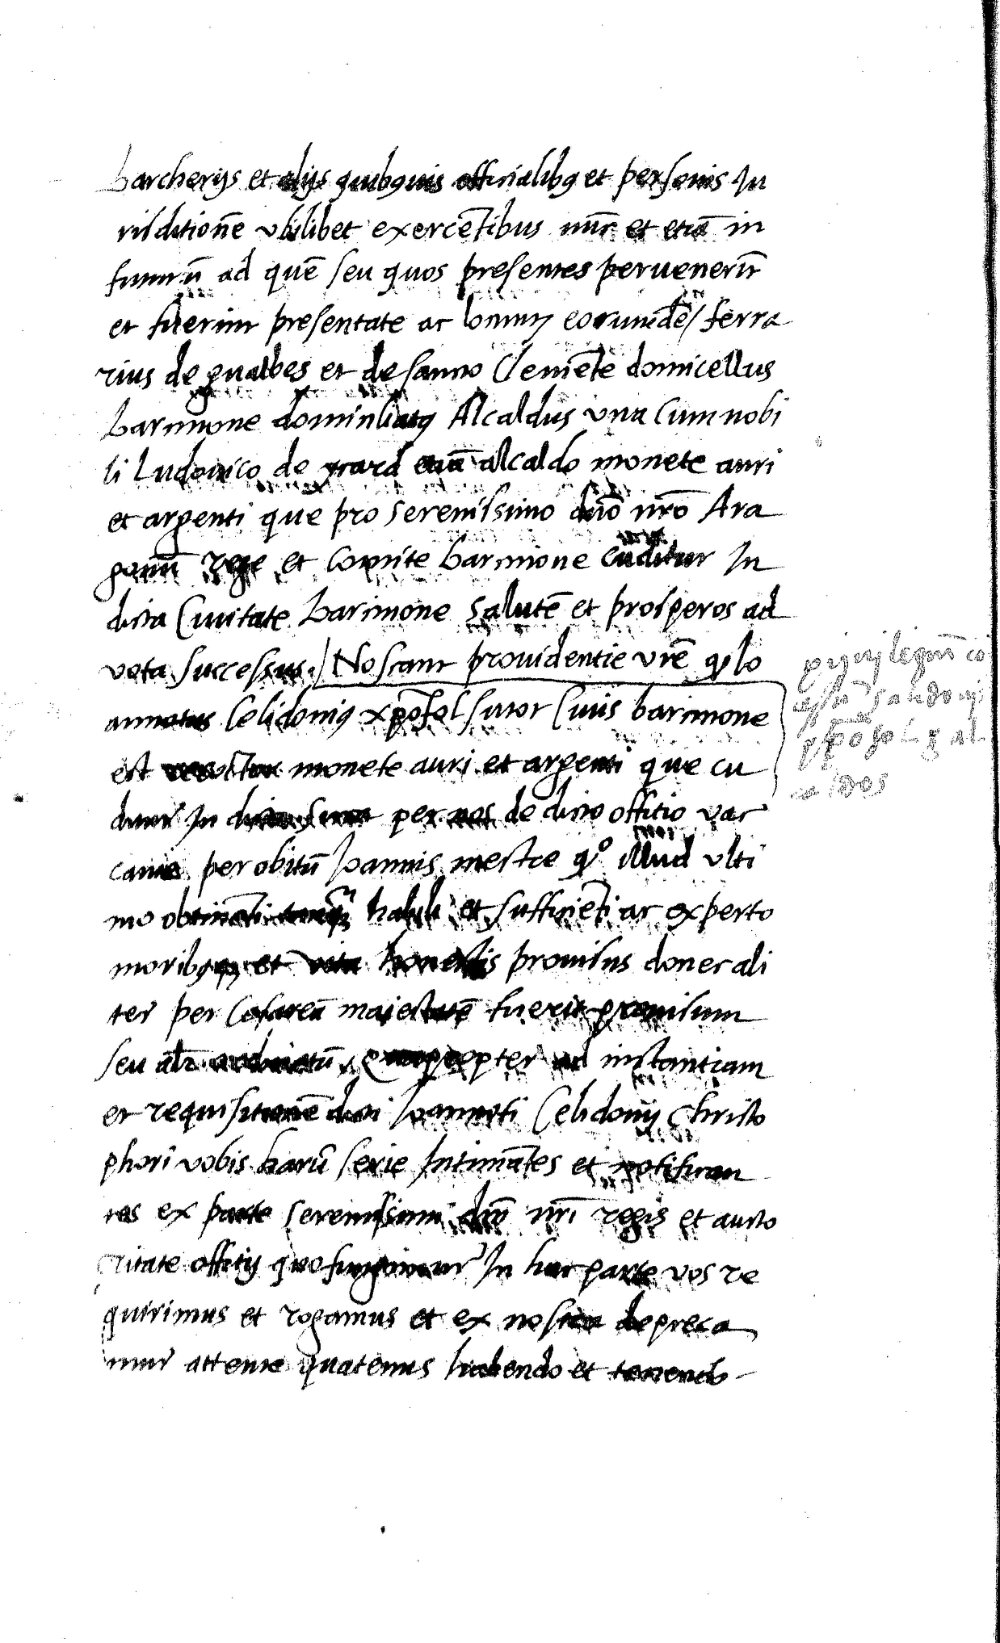 barcherijs et alijs quibquis officialibq et personis In
risditionē vbilibet exercētibus nūc et etiā in
futurū ad quē seu quos presentes peruenerīt
et fuerint presentate ac locumt eorumdē / ferra
rius de gualbes et de sancto Clemēte domicellus
barcinone Alcaldus vna Cum nobi
li Ludouico de etiā alcaldo monete auri
et argenti que pro serenissimo dnō nrō Ara
gonū rege et Comite barcinone cuditur In
dicta Ciuitate barcinone salutē et prosperos ad
vota successus / Noscant prouidentie vrē qɉ lo
annotus Celidoniq xpōfol sutor Ciuis barcinone
est monete auri et argenti que cu
ditur In per nos de dicto offitio vac
cante per obitū Joannis mestre qº illud vlti
mo habili et sufficiēti ac experto
moribq et vita honestis prouisus donec ali
ter per Cesareā maiestatē fuerit prouisum
seu alr̄ ordinatū Quapropter ad instantiam
et requisitionē dicti Joannoti Celidonij Christo
phori vobis harū serie Intimātes et notifican
tes ex parte serenissimi dnī nrī regis et aucto
ritate offitij quo fungimur In hac parte vos re
quirimus et rogamus et ex nostra depreca
mur attente quatenus habendo et tenendo
priuilegiū co